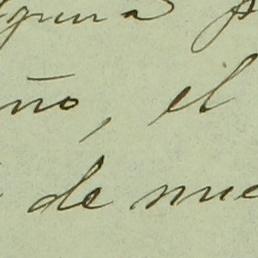 guna p
ño, el
de nue